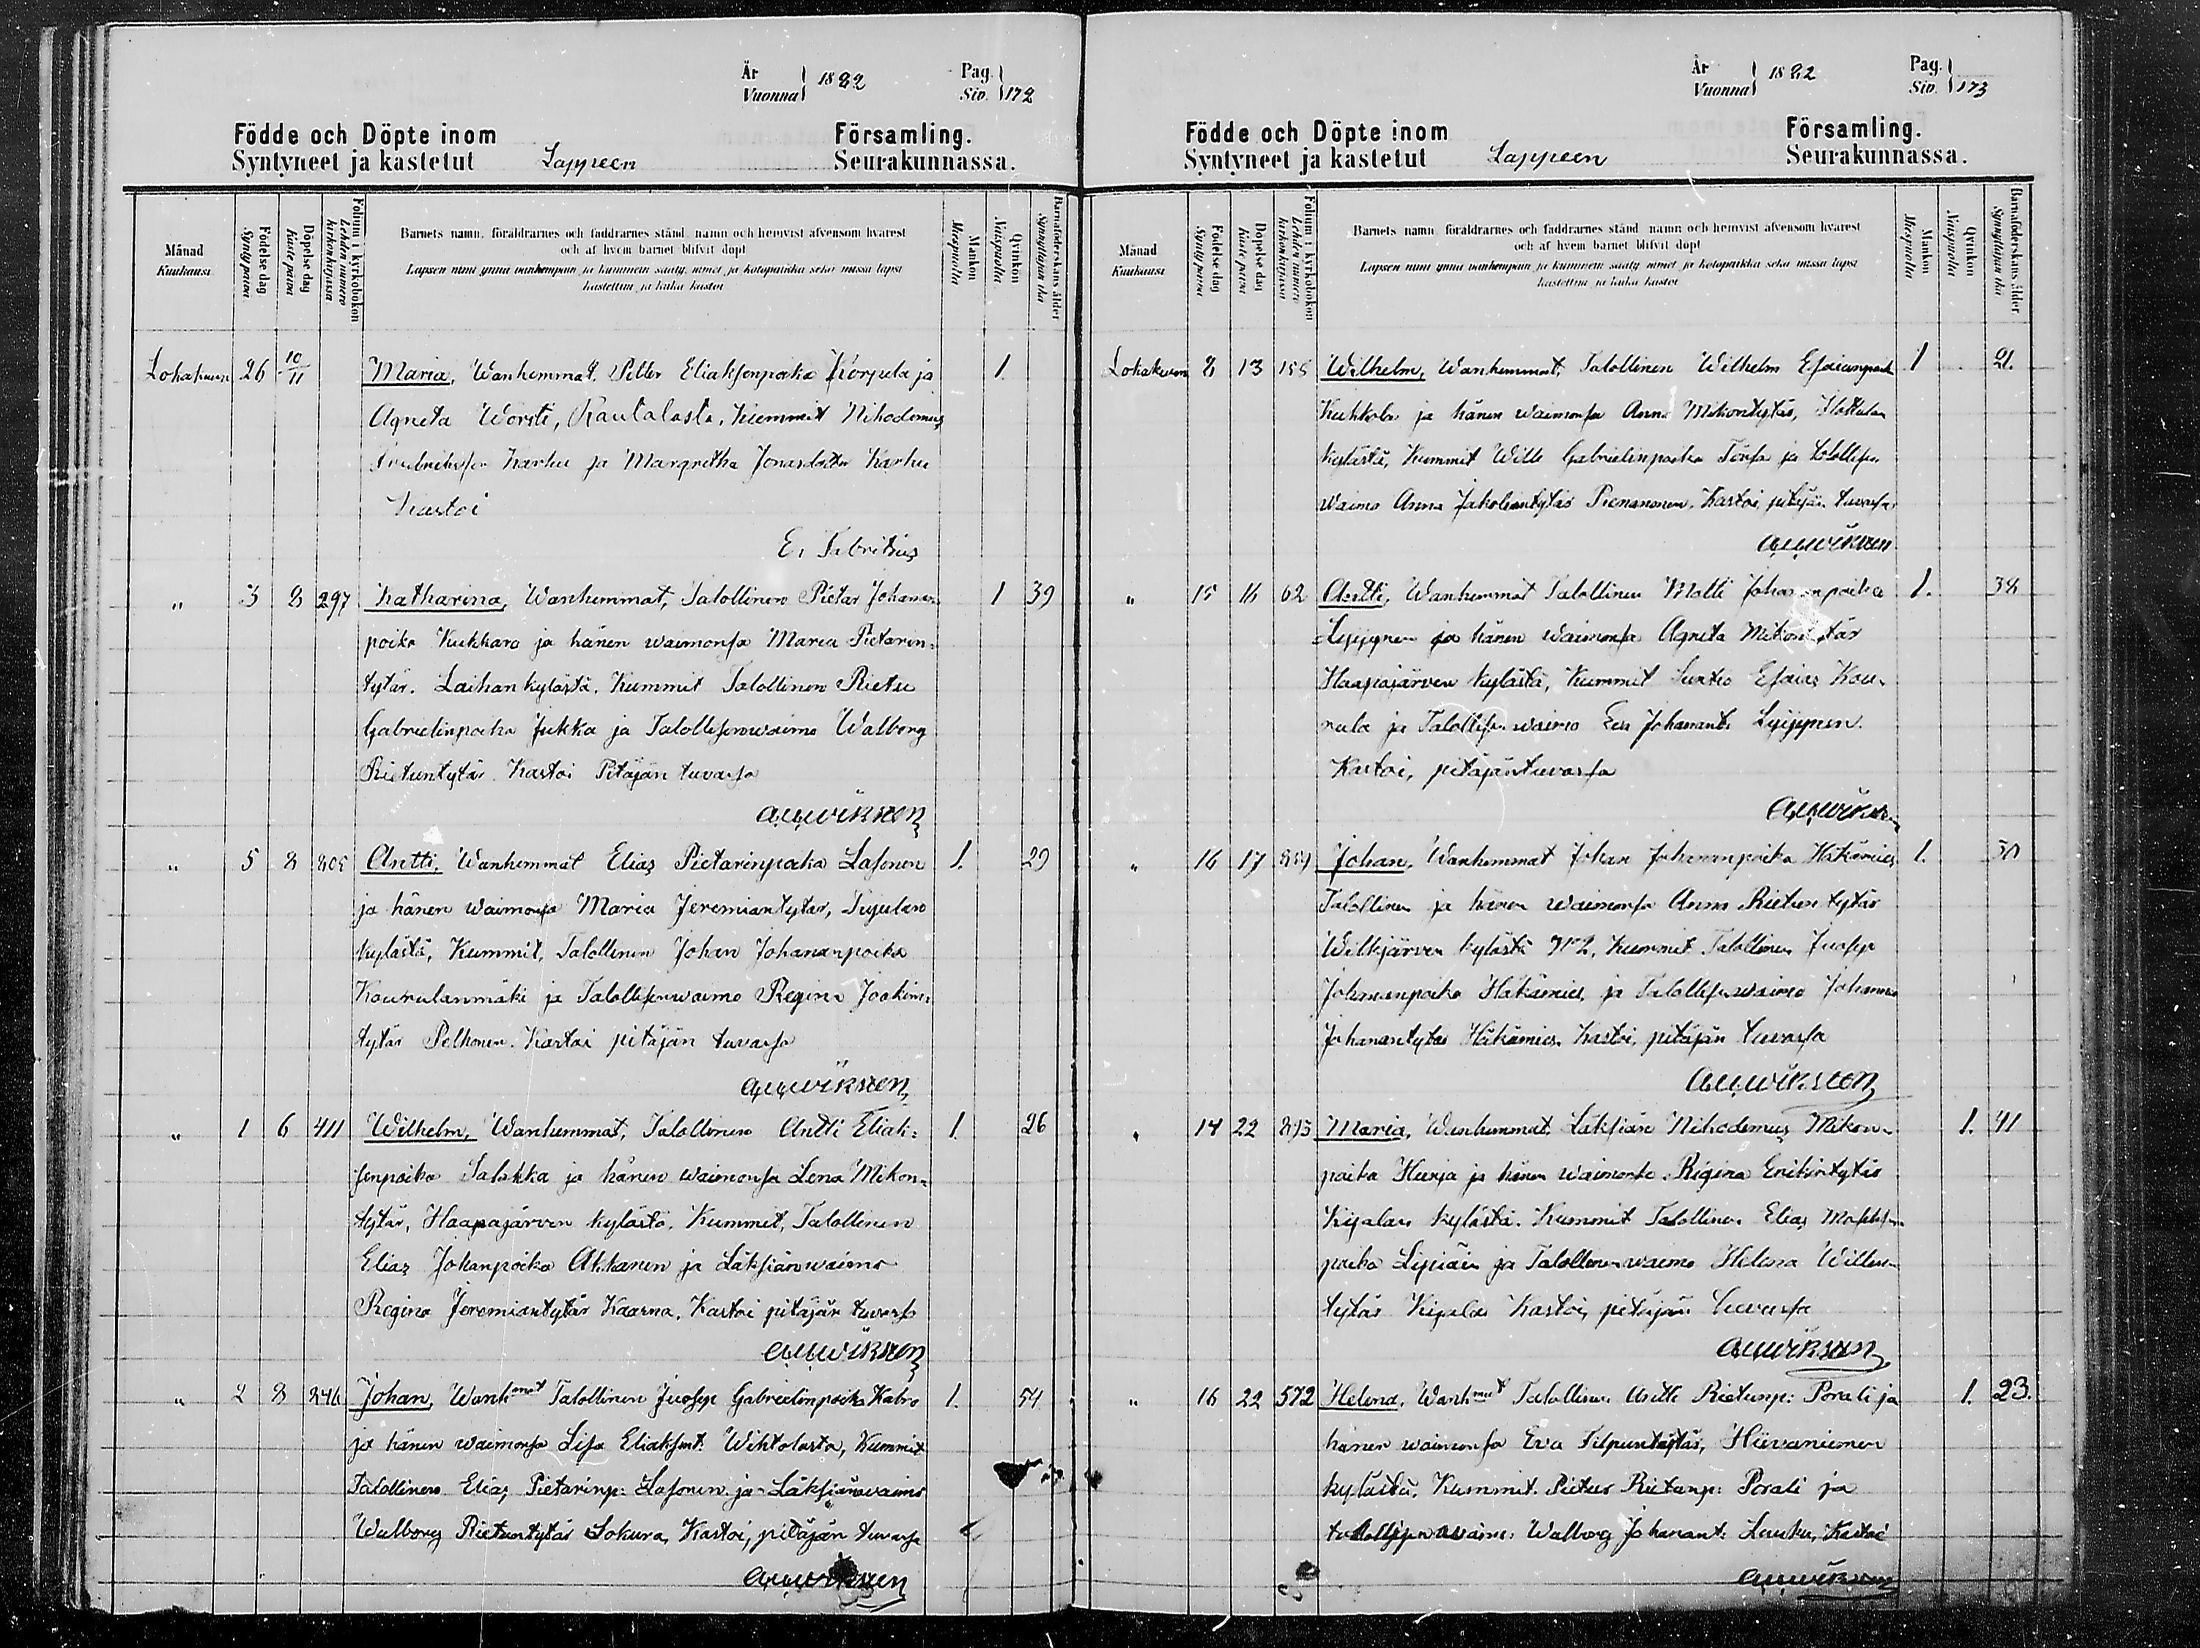 År
Vuonna 1882
Pag.
Siv. 172
Födde och Döpte inom Församling.
Syntyneet ja kastetut Lappeen Seurakunnassa.
Månad
Kuukausi
Födelse dag
Synty päivä
Döpelse dag
Kaste päivä
Folium i kyrkoboken
Lehden numero kirkonkirjassa
Barnets namn, föräldrarnes och faddrarnes stånd, namn och hemvist äfvensom hvarest
och af hvem barnet blifvit döpt
Lapsen nimi ynnä vanhempain ja kummein sääty, nimet ja kotopaikka sekä missä lapsi
kastettiin ja kuka kastoi
Mankön
Miespuolia
Qvinkön
Naispuolia
Barnaföderskans ålder
Synnyttäjän ikä
Lokakuun 26 10/11 Maria, Wanhemmat, Petter Eliaksenpoika Kiorpela ja 1.
Agneta Worsti, Rautalasta, Kummit Nikodemus
Karhu ja Margretha Jonasdotter Karhu
Kastoi
E. Fabritius
" 3 8 297 Katharina, Wanhemmat, Talollinen Pietar Johanan 1 39
poika Kukkaro ja hänen waimonsa Maria Pietarin-
tytär. Laihan kylästä, Kummit Talollinen Pietu
Gabrielinpoika Jukka ja Talollisenwaimo Walborg
Rietuntytär. Kastoi Pitäjän tuvassa
A. W. Wiksten
" 5 8 205 Antti, Wanhemmat Elias Pietarinpoika Lasonen 1. 29
ja hänen waimonsa Maria Jeremiantytär,
kylästä, Kummit, Talollinen Johan Johananpoika
Kourulanmäki ja Talollisenwaimo Regina Joakim-
tytär Pelkonen. Kastoi pitäjän tuvassa
A. W. Wiksten
" 1 6 411 Wilhelm, Wanhemmat, Talollinen Antti Eliak- 1. 26
senpoika Salakka ja hänen waimonsa Lena Mikon-
tytär, Haapajärven kylästä. Kummit, Talollinen
Elias Johanpoika Akkanen ja Läksiänwaimo
Regina Jeremiantytär Kaarna. Kastoi pitäjän tuvassa
A. W. Wiksten
" 2 8 246 Johan, Wanhmat Talollinen Juosep Gabrielinpoika Kabro 1. 54
ja hänen waimonsa Lisa Eliaksent: Wihtolasta, Kummit
Talollinen Elias Pietarinp: Lasonen ja Läksiänwaimo
Walborg Rietuntytär Sokura, Kastoi, pitäjän tuvassa
A. W. Wiksten
År
Vuonna 1882
Pag.
Siv. 173
Födde och Döpte inom Församling.
Syntyneet ja kastetut Lappeen Seurakunnassa.
Månad
Kuukausi
Födelse dag
Synty päivä
Döpelse dag
Kaste päivä
Folium i kyrkoboken
Lehden numero kirkonkirjassa
Barnets namn, föräldrarnes och faddrarnes stånd, namn och hemvist äfvensom hvarest
och af hvem barnet blifvit döpt
Lapsen nimi ynnä vanhempain ja kummein sääty, nimet ja kotopaikka sekä missä lapsi
kastettiin ja kuka kastoi
Mankön
Miespuolia
Qvinkön
Naispuolia
Barnaföderskans ålder
Synnyttäjän ikä
Lokakuun 8 13 155 Wilhelm, Wanhemmat, Talollinen Wilhelm Esaianpoika 1 21.
Kukkola ja hänen waimonsa Anna Mikontytär, Hattulan
kylästä, Kummit Wille Gabrielinpoika Torsa ja talollisen
waimo Anna Jakobintytär Pienanonen. Kastoi pitäjän tuvassa
A. W. Wiksten
" 15 16 62 Antti, Wanhemmat Talollinen Matti Johananpoika 1. 38
Lyijynen ja hänen waimonsa Agneta Mikontytär
Haapajärven kylästä, Kummit Suntio Esaias Kou-
rula ja Talollisenwaimo Eva Johanant: Lyijynen.
Kastoi, pitäjäntuvassa
A. W. Wiksten
" 16 17 Johan, Wanhemmat Johan Johananpoika Häkämies 1. 30
Talollinen ja hänen waimonsa Anna Rietuntytär
Willijärven kylästä No 2, Kummit Talollinen Juosep
Johananpoika Häkämies, ja Talollisenwaimo Johanna
Johanantytär Häkämies. Kastoi, pitäjän tuvassa
A. W. Wiksten
" 14 22 Maria, Wanhemmat, Läksiäin Nikodemus Mikon- 1. 41
poika Hurja ja hänen waimonsa Regina Erikintytär
Kijalan kylästä. Kummit Talollinen Elias
poika Lipiäin ja Talollisenwaimo Helena Willen-
tytär Kijala. Kastoi, pitäjän tuvassa
A. W. Wiksten
" 16 22 572 Helena, Wanhmat Talollinen Antti Rietunp: Porali ja 1. 23.
hänen waimonsa Eva Filpuntytär, Hiivaniemen
kylästä, Kummit. Pietus Rietunp: Porali ja
talollisenwaimo: Walborg Johanant: Lauku, Kastoi
A. W. Wiksten